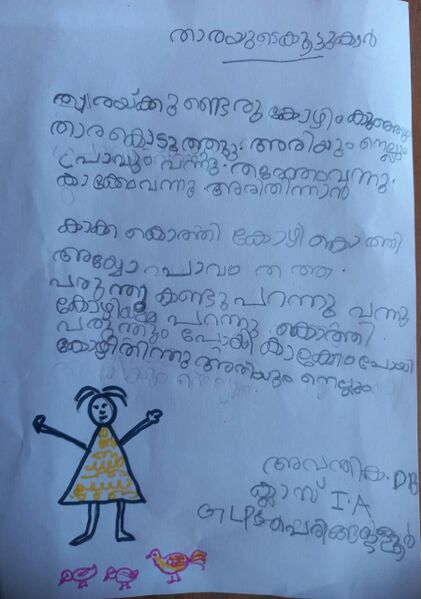 താരയുടെകൂട്ടുകാർ
താരയ്ക്കുണ്ടെരു കോഴിം
താരകൊടുത്തു. അരിയും നെല്ലും
പ്രാവും വന്നു. തത്തേംവന്നു.
കാക്കേംവന്നു അരിതിന്നാൻ
കാക്ക കൊത്തി കോഴി കൊത്തി
അയ്യോ പാവം തത്ത.
പരുന്തു കണ്ടു പറന്നു വന്നു
കോഴിയമ്മ പറന്നു കൊത്തി
പരുന്തും പോയി കാക്കേംപോയി
കോഴിതിന്നു അരിയും നെല്ലും
അവന്തിക. DB
ക്ലാസ് I.A